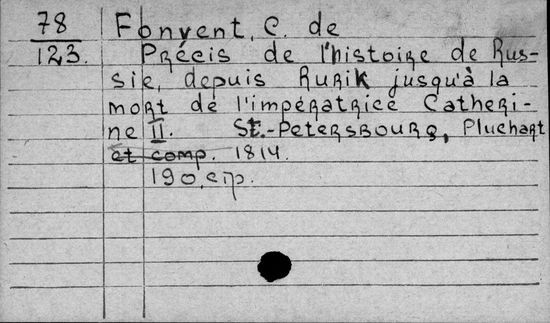 78
123.
Fonvent, C. de
Précis de l'histoire de Rus-
sie, depuis Rurik jusqu'à la
mort de l'impératrice Catheri-
ne II. St.-Petersbourg, Pluchart
et comp. 1814.
190 стр.